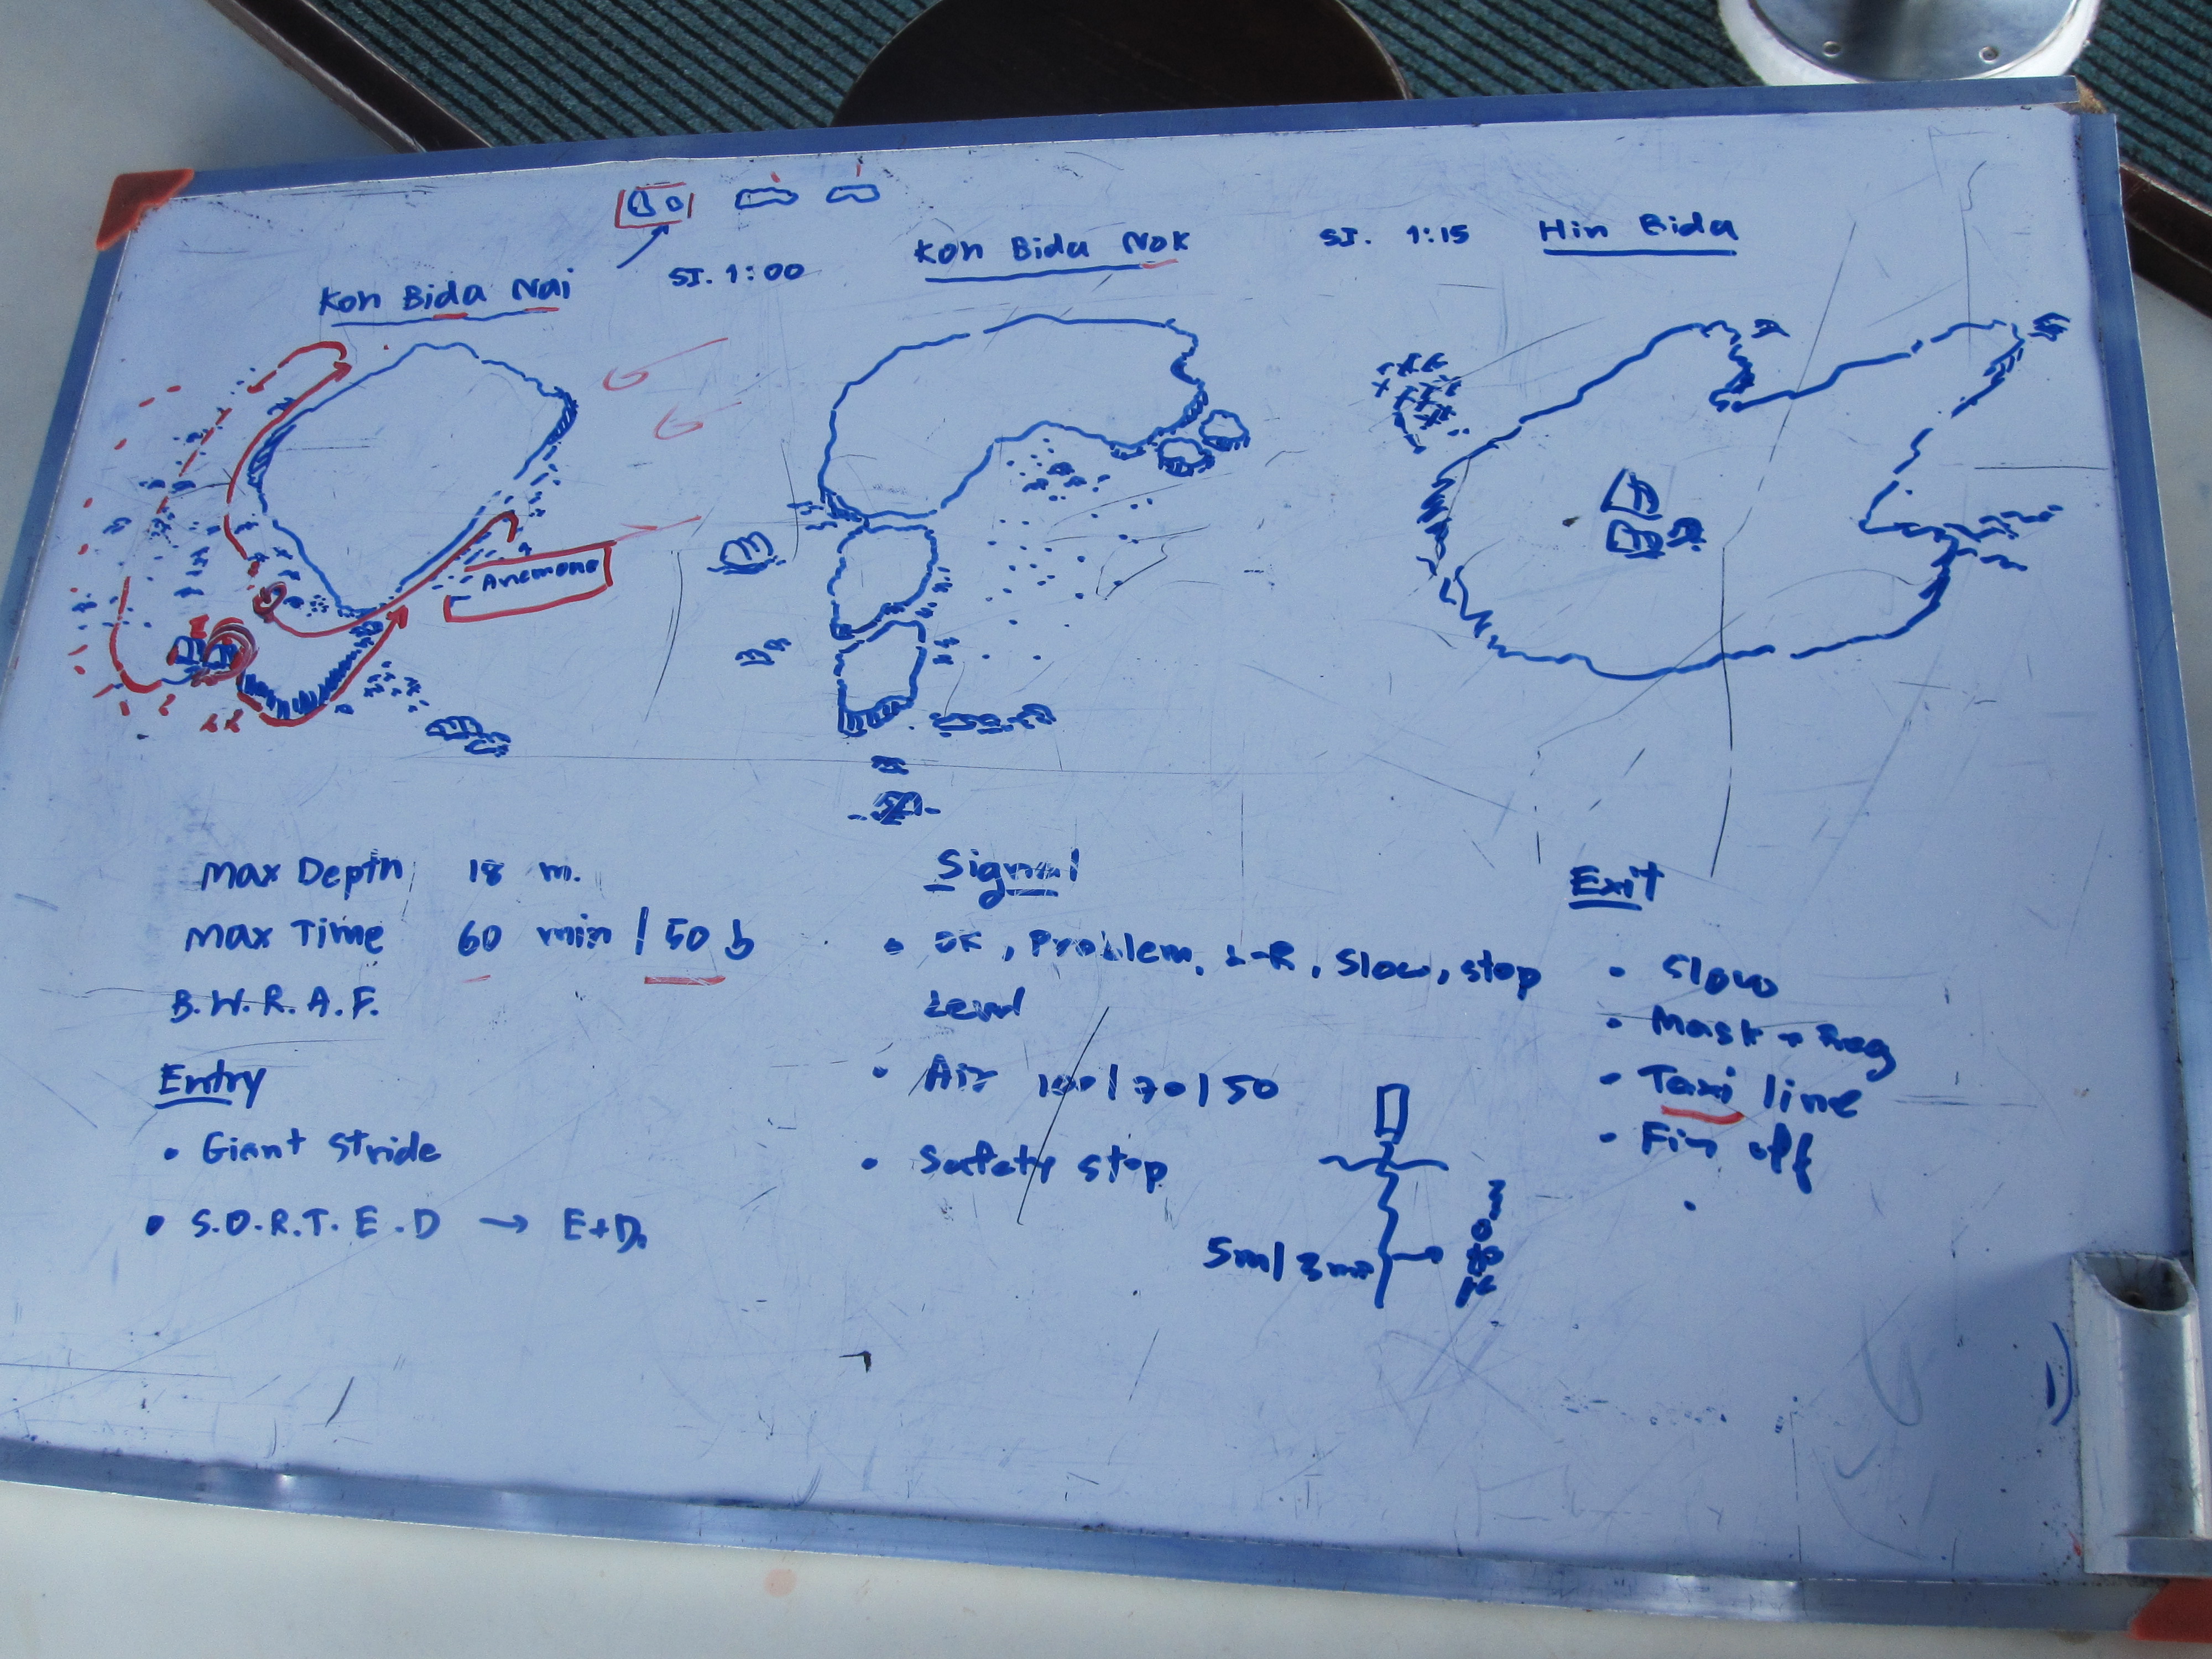 Koh Bida Nai
SI. 1:00
Koh Bida Nok
SI. 1:15
Hin Bida
Anemone
Max Depth 18 m.
Max Time 60 min / 50 b
B.W.R.A.F.
Entry
• Giant Stride
• S.O.R.T.E.D → E+D.
Signal
• OK, Problem, L-R, Slow, stop
Level
• Air 100/70/50
• Safety stop
5m/3min
Exit
• Slow
• Mask + Reg
• Taxi line
• Fin off